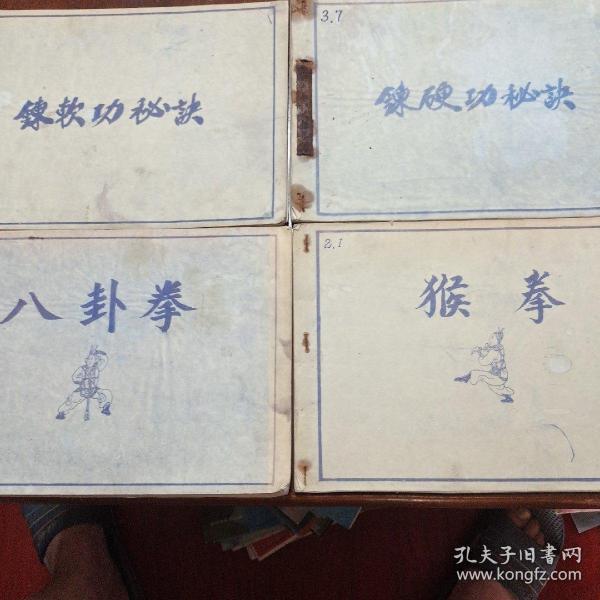 錬軟功秘訣
3.7
錬硬功秘訣
八卦拳
2.1
猴拳
孔夫子旧書网
www.kongfz.com